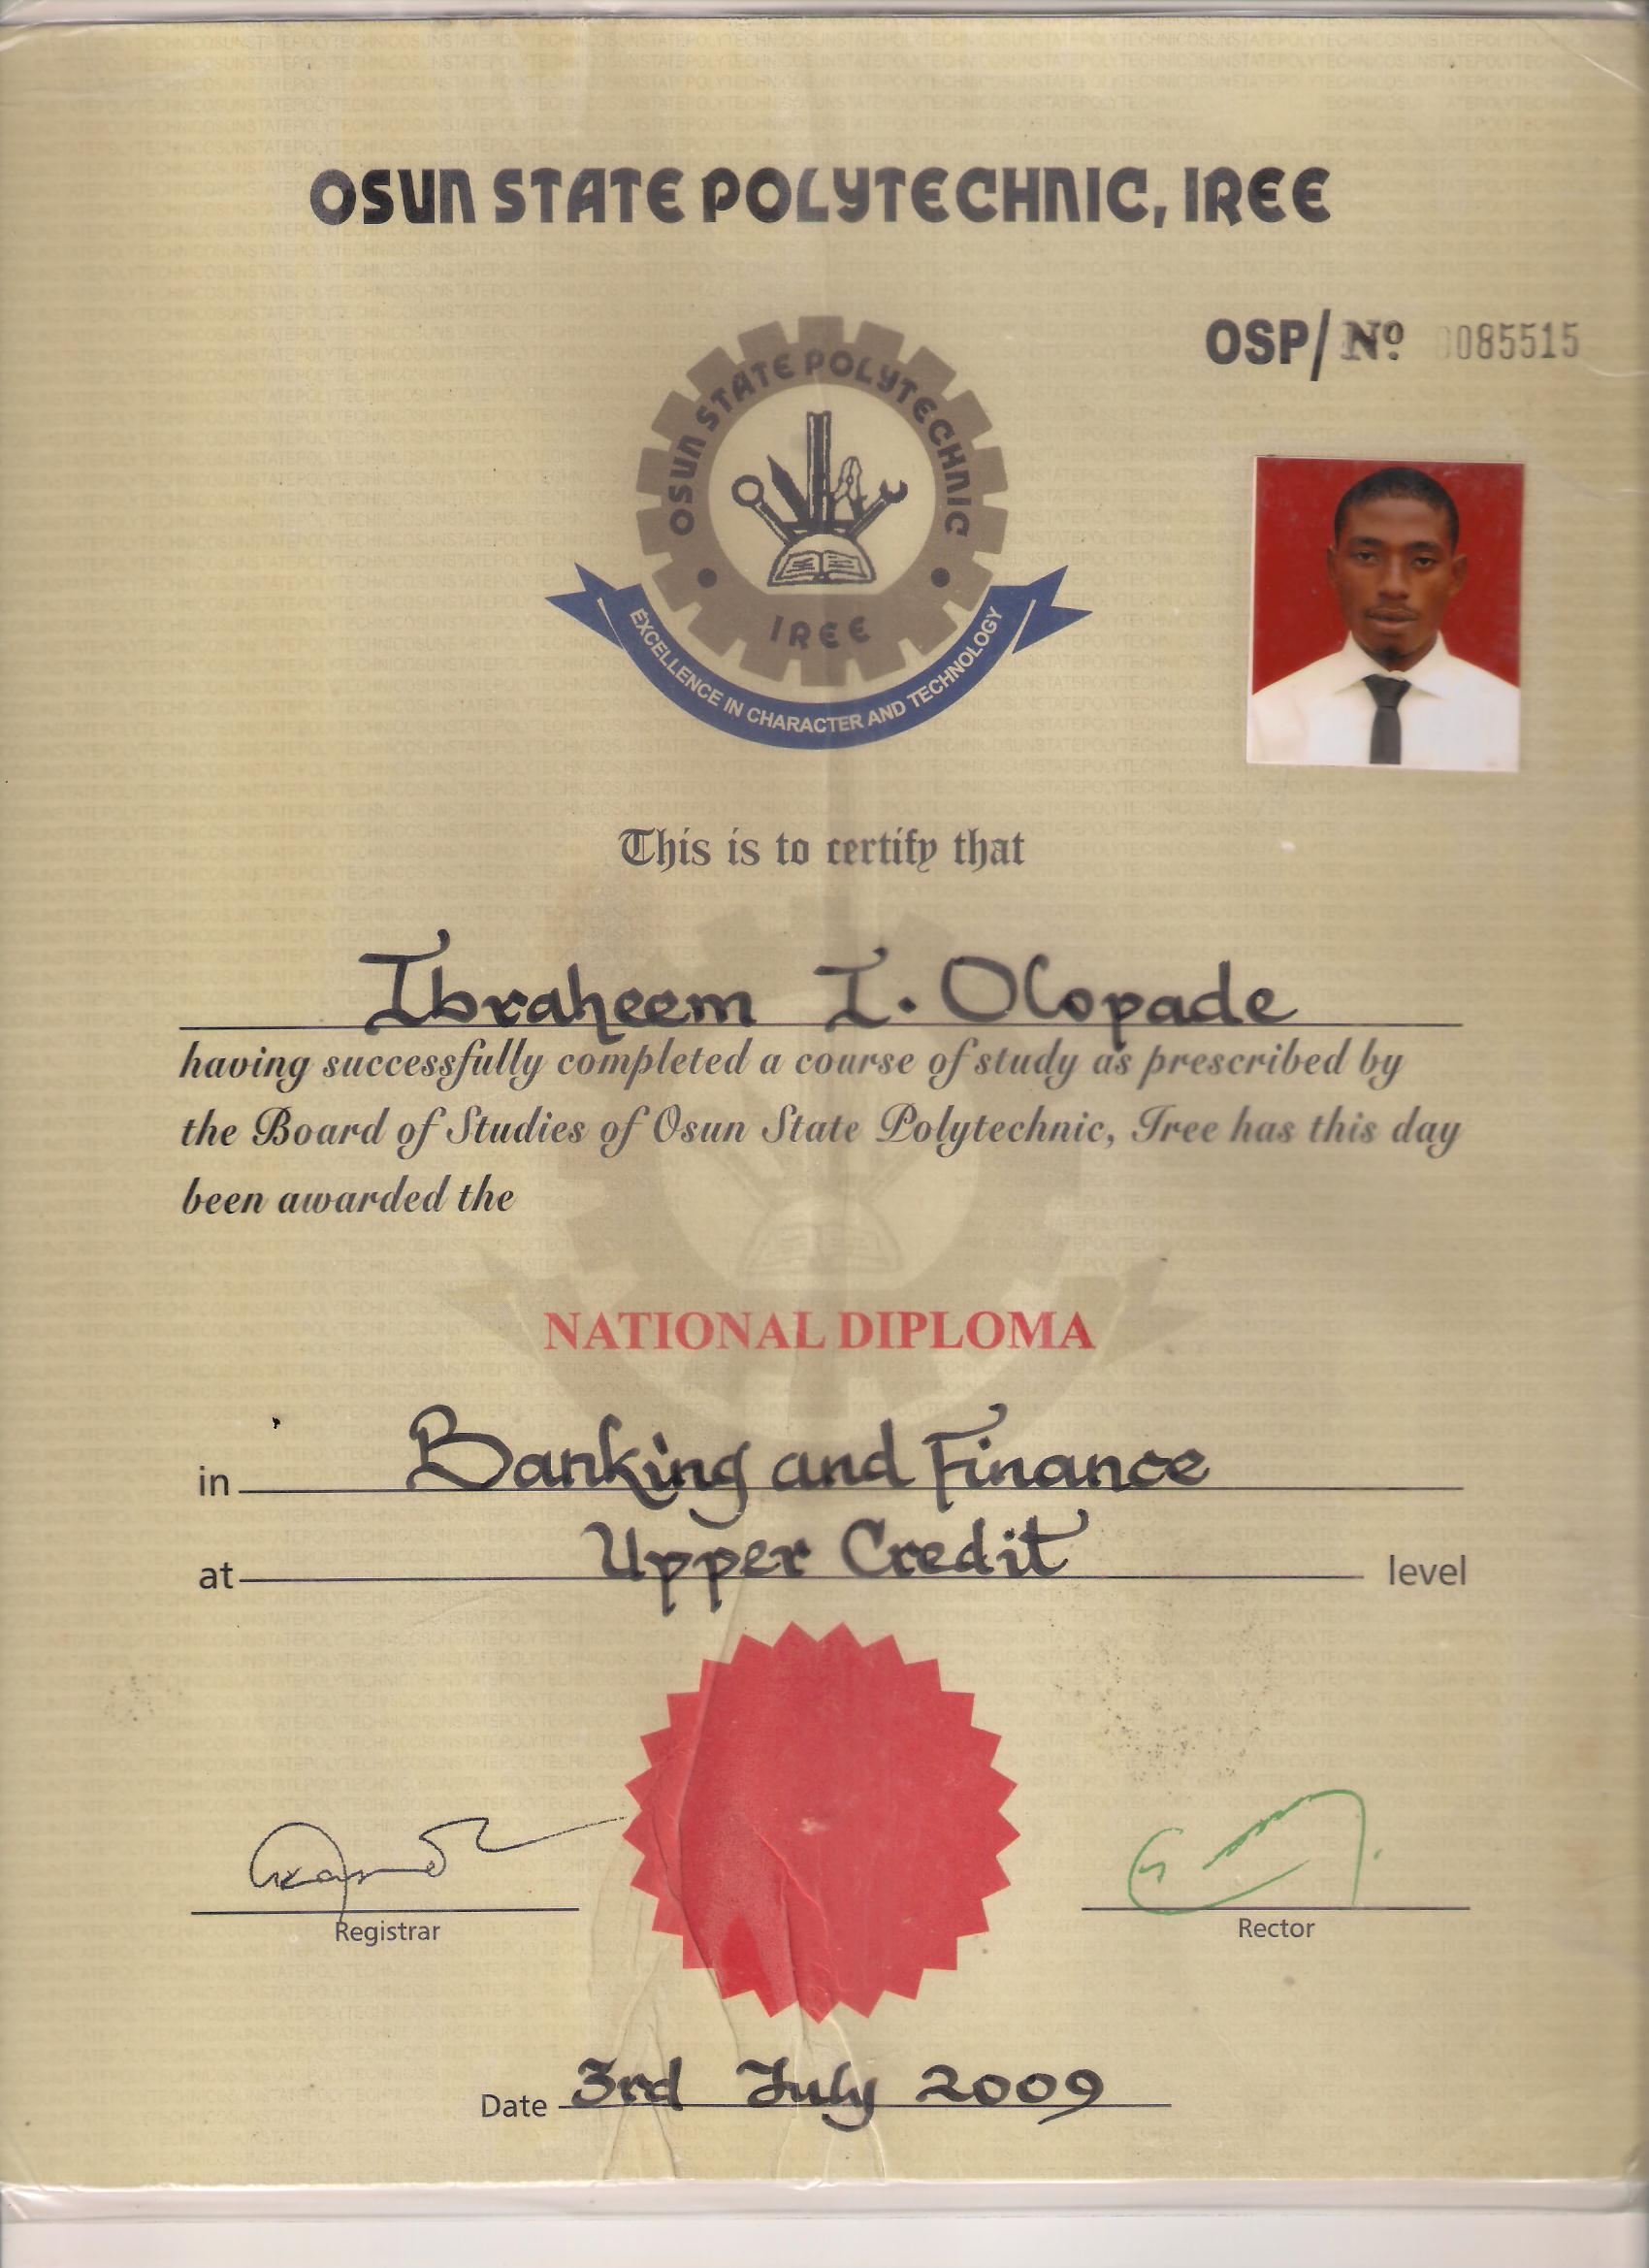 OSUN STATE POLYTECHNIC, IREE
OSP/ Nº 0085515
OSUN STATE POLYTECHNIC
IREE
EXCELLENCE IN CHARACTER AND TECHNOLOGY
This is to certify that
Ibraheem I. Olopade
having successfully completed a course of study as prescribed by
the Board of Studies of Osun State Polytechnic, Iree has this day
been awarded the
NATIONAL DIPLOMA
in Banking and Finance
at Upper Credit level
Registrar
Rector
Date 3rd July 2009